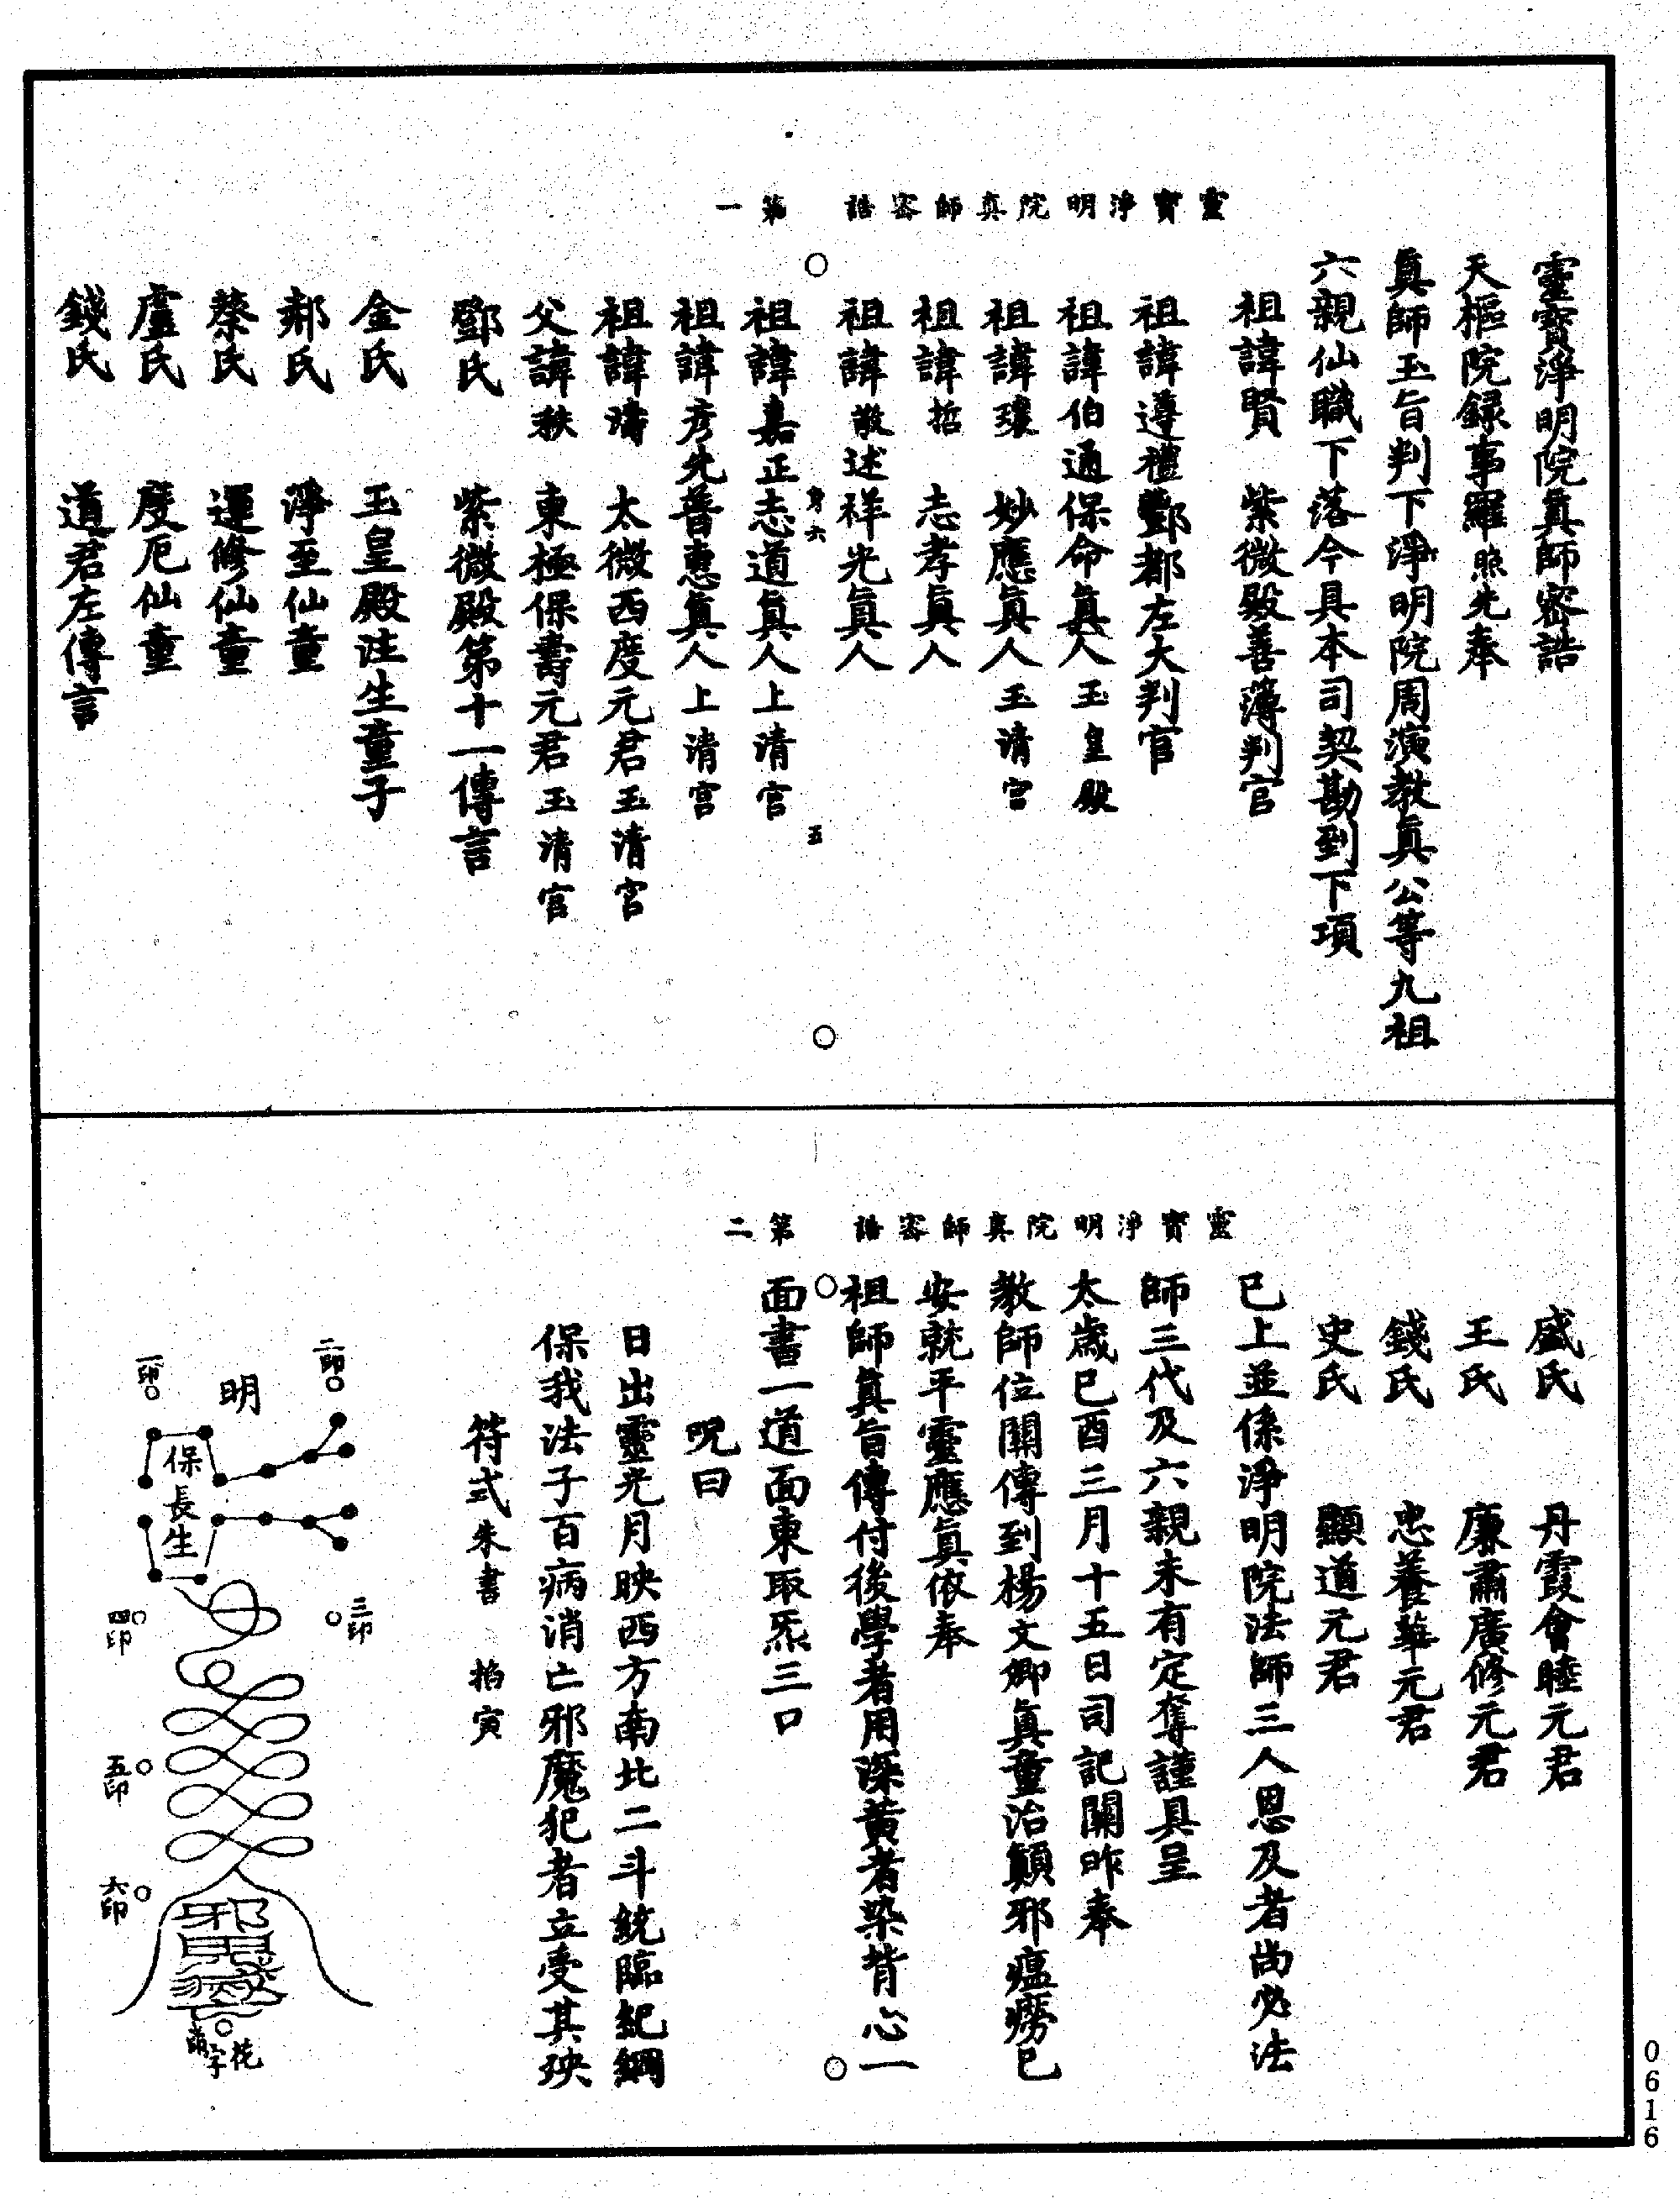 靈寶淨明院真師密誥　第一
靈寶淨明院眞師密誥
天樞院録事羅熙先奉
眞師玉旨判下淨明院周演教眞公等九祖
六親仙職下落今具本司契勘到下項
祖諱賢　紫微殿善薄判官
祖諱遵禮酆都左大判官
祖諱伯通保命眞人玉皇殿
祖諱瓌　妙應眞人玉清宮
祖諱哲　志孝眞人
祖諱敬述祥光眞人
身六　五
祖諱嘉正志道眞人上清宮
祖諱彦先普惠眞人上清宮
祖諱濤　太微西度元君玉清宮
父諱秩　東極保壽元君玉清宮
鄧氏　紫微殿第十一傳言
金氏　玉皇殿注生童子
郝氏　淨至仙童
蔡氏　運修仙童
盧氏　度厄仙童
錢氏　道君左傳言
靈寶淨明院真師密誥　第二
盛氏　丹霞會睦元君
王氏　廉肅廣修元君
錢氏　忠養華元君
史氏　顯道元君
已上並係淨明院法師三人恩及者尚必法
師三代及六親未有定奪謹具呈
太歲巳酉三月十五日司記關昨奉
教師位關傳到楊文卿眞童治顛邪瘟癆已
安就平靈應眞依奉
祖師眞旨傳付後學者用深黃者染背心一
面書一道面東取炁三口
呪曰
日出靈光月映西方南北二斗統臨紀綱
保我法子百病消亡邪魔犯者立受其殃
符式朱書　拍寅
二印
明
一印
保長生
三印
四印
五印
六印
花字
0616